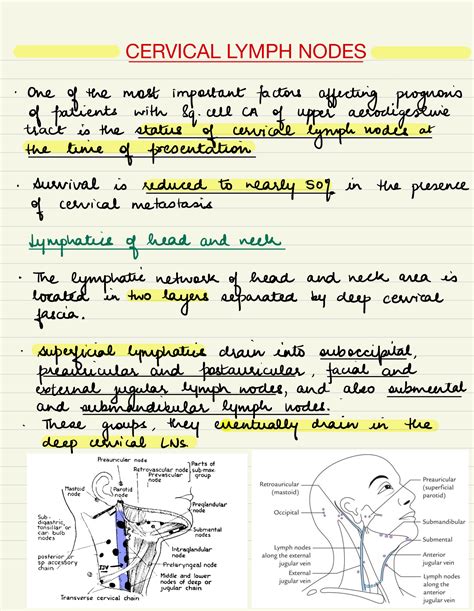 CERVICAL LYMPH NODES
· One of the most important factors affecting prognosis
of patients with Sq. cell CA of upper aerodigestive
tract is the status of cervical lymph nodes at
the time of presentation
· Survival is reduced to nearly 50% in the presence
of cervical metastasis
Lymphatics of head and neck
· The lymphatic network of head and neck area is
located in two layers separated by deep cervical
fascia.
· Superficial lymphatics drain into suboccipital,
preauricular and postauricular, facial and
external jugular lymph nodes, and also submental
and submandibular lymph nodes.
· These groups, they eventually drain in the
deep cervical LNs.
Preauricular node
Mastoid
node
Parotid
node
Retrovascular node
Prevascular
node
Parts of
sub-max
group
Preglandular
node
Submental
nodes
Intraglandular
node
Prelaryngeal node
Middle and lower
nodes of deep
or jugular chain
Sub-
digastric,
tonsillar or
can bush
node
posterior
or sp accessory
chain
IJV
Transverse cervical chain
Retroauricular
(mastoid)
Occipital
Lymph nodes
along the external
jugular vein
External
jugular vein
Preauricular
(superficial
parotid)
Submandibular
Submental
Anterior
jugular vein
Lymph nodes
along the anterior
jugular vein